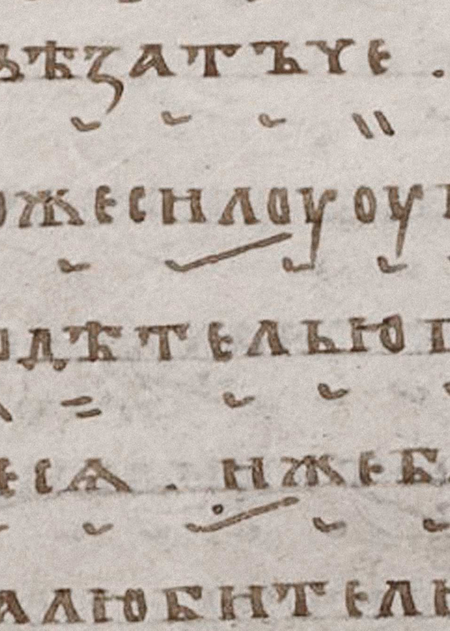 вѣзатъче .
ожесилоуоу
одѣтелью
есѧ .ижеб
алюбитель